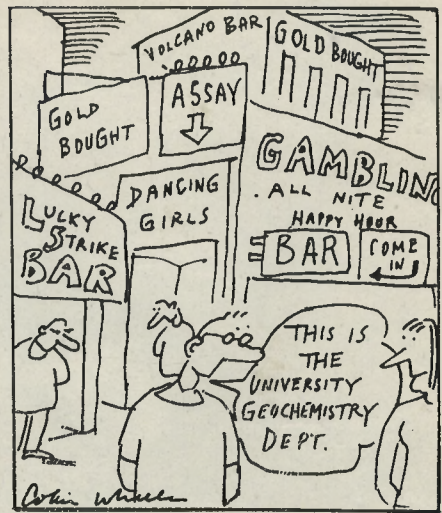 VOLCANO BAR
GOLD BOUGHT
GOLD
BOUGHT
ASSAY
GAMBLING
ALL NITE
HAPPY HOUR
BAR
COME
IN
DANCING
GIRLS
LUCKY
STRIKE
BAR
THIS IS
THE
UNIVERSITY
GEOCHEMISTRY
DEPT.
Colin Wheeler